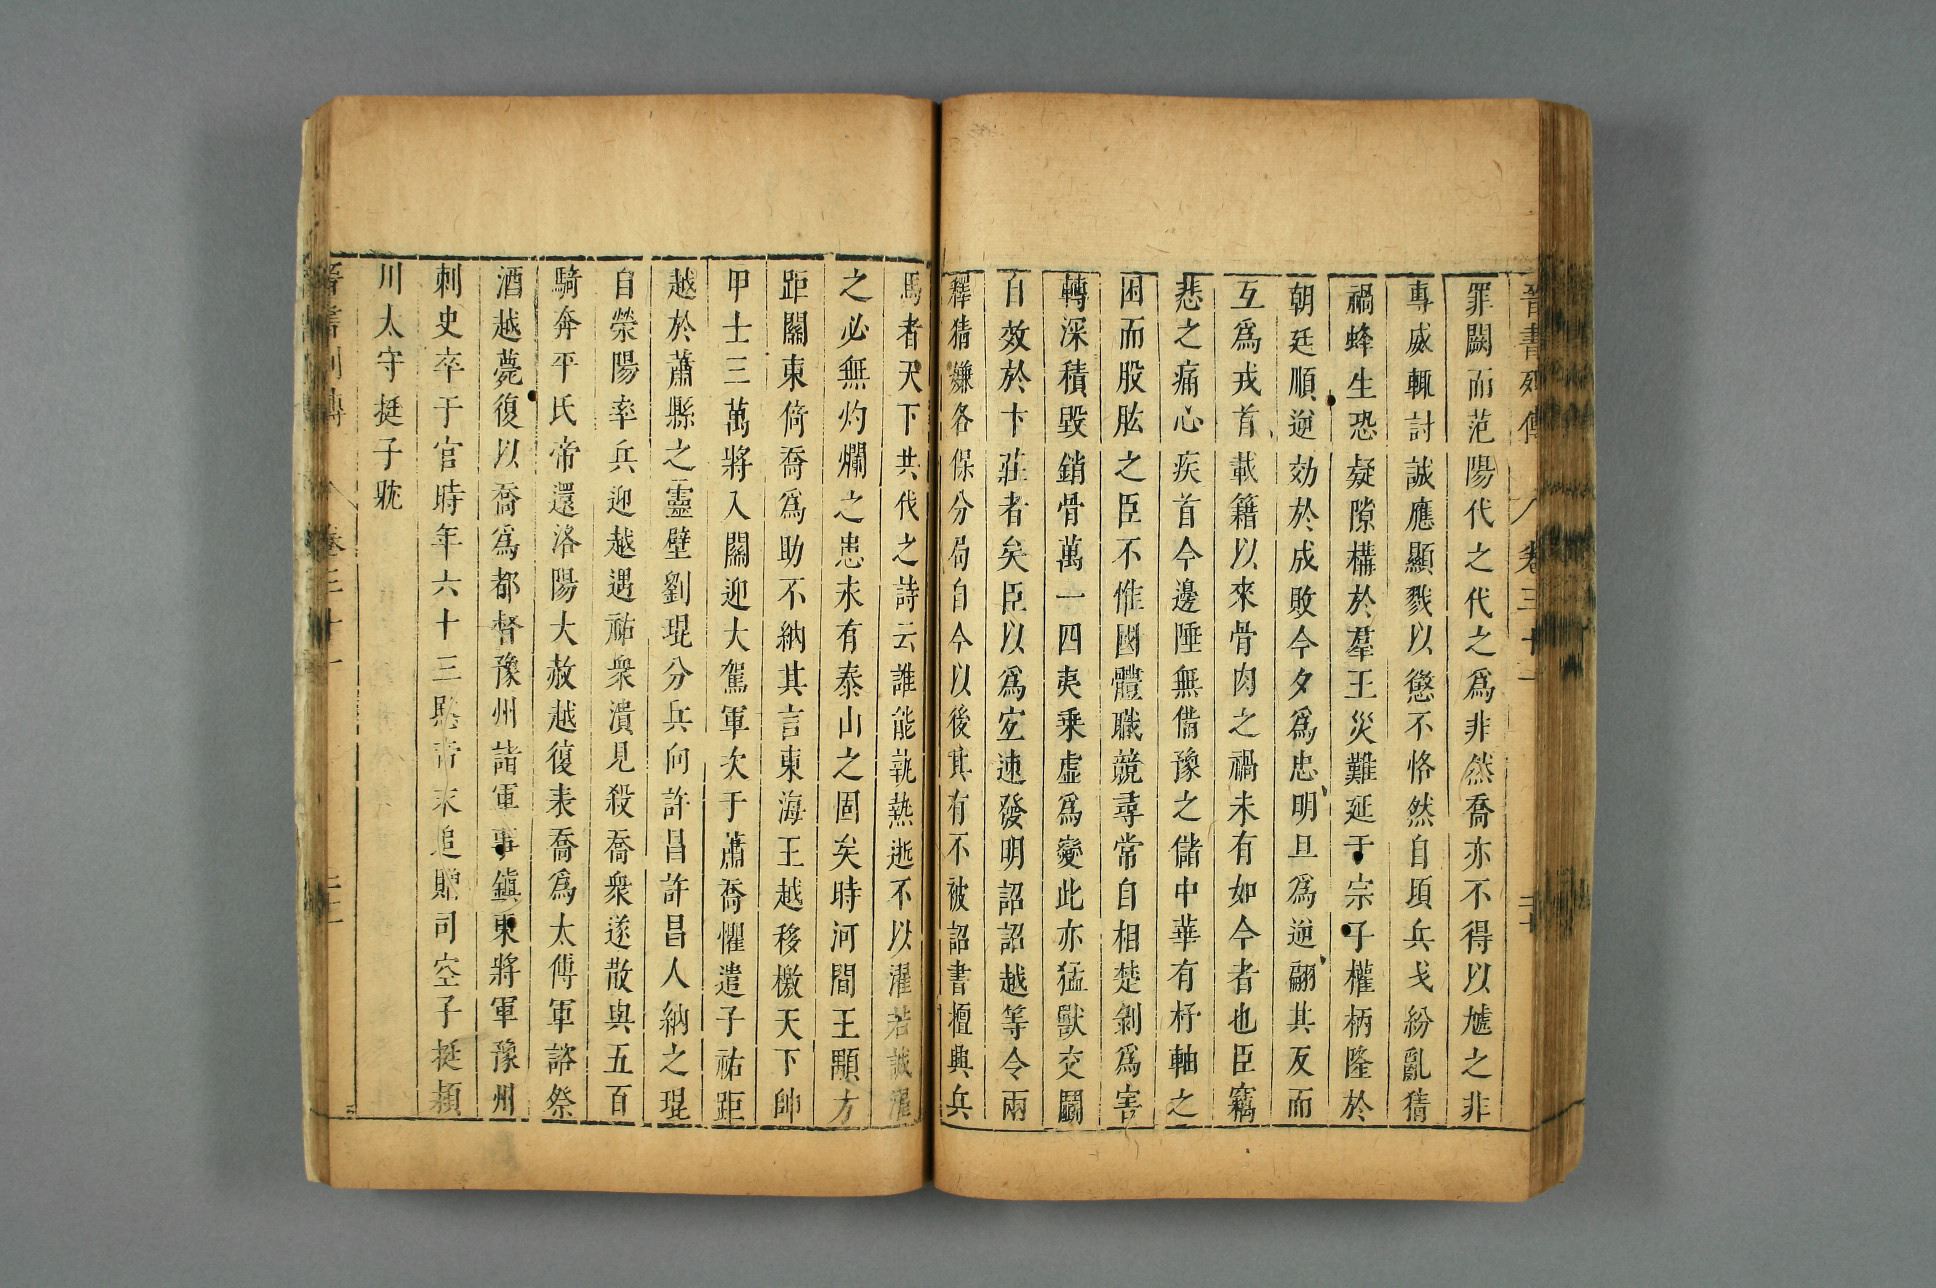 晉書列傳 卷三十一 三十
罪闕而范陽代之代之爲非然喬亦不得以虓之非
專威輒討誠應顯戮以懲不恪然自頃兵戈紛亂猜
禍蜂生恐疑隙構於羣王災難延于宗子權柄隆於
朝廷順逆効於成敗今夕爲忠明旦爲逆翩其反而
互爲戎首載籍以來骨肉之禍未有如今者也臣竊
悲之痛心疾首今邊陲無備豫之儲中華有杼軸之
困而股肱之臣不惟國體職競尋常自相楚剝爲害
轉深積毀銷骨萬一四夷乘虛爲變此亦猛獸交鬭
自效於卞莊者矣臣以爲宜速發明詔詔越等令兩
釋猜嫌各保分局自今以後其有不被詔書擅興兵
馬者天下共伐之詩云誰能執熱逝不以濯若誠濯
之必無灼爛之患永有泰山之固矣時河間王顒方
距關東倚喬爲助不納其言東海王越移檄天下帥
甲士三萬將入關迎大駕軍次于蕭喬懼遣子祐距
越於蕭縣之靈壁劉琨分兵向許昌許昌人納之琨
自滎陽率兵迎越遇祐衆潰見殺喬衆遂散與五百
騎奔平氏帝還洛陽大赦越復表喬爲太傅軍諮祭
酒越薨復以喬爲都督豫州諸軍事鎮東將軍豫州
刺史卒于官時年六十三愍帝末追贈司空子挺潁
川太守挺子耽
晉書列傳 卷三十一